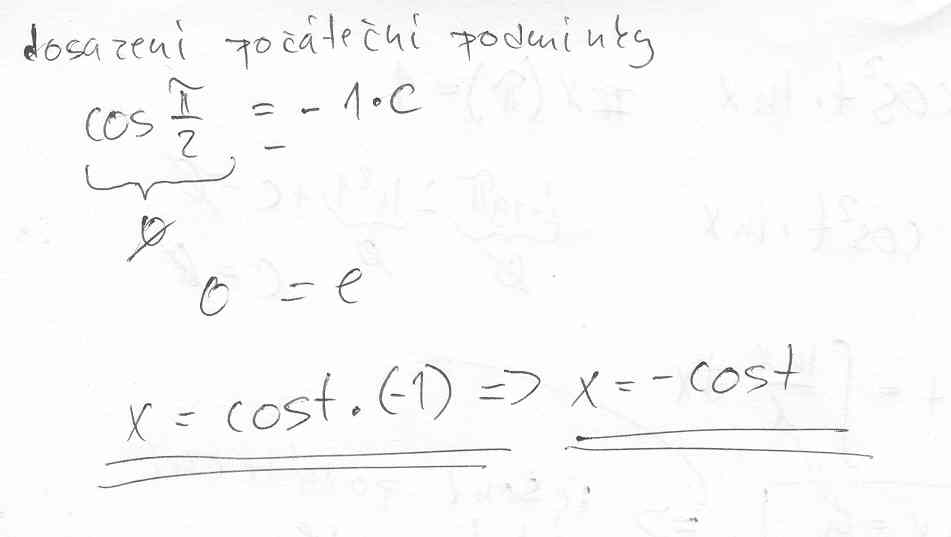 dosazení počáteční podmínky
cos π/2 = - 1·C
0
0 = C
x = cost·(-1) => x = -cost